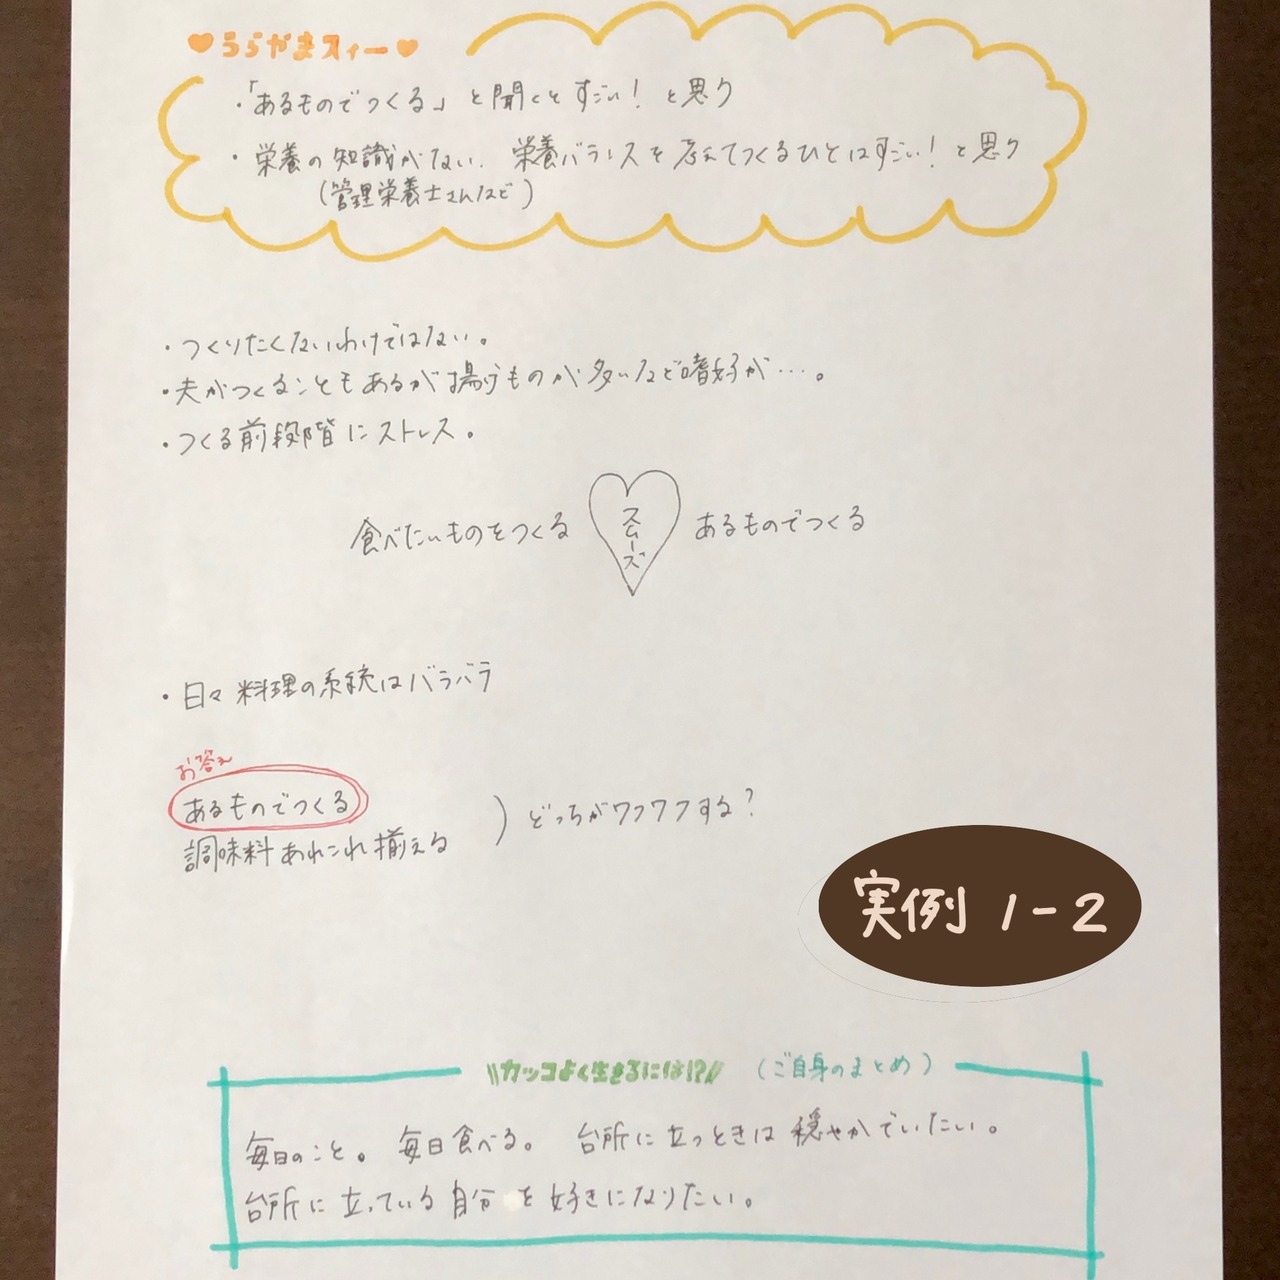 ♥うらやまスィー♥
・「あるものでつくる」と聞くとすごい！と思う
・栄養の知識がない。栄養バランスを考えてつくるひとはすごい！と思う
(管理栄養士さんなど)
・つくりたくないわけではない。
・夫がつくることもあるが揚げものが多いなど嗜好が…。
・つくる前段階にストレス。
食べたいものをつくる スムーズ あるものでつくる
・日々料理の系統はバラバラ
お答え
あるものでつくる
調味料あれこれ揃える
) どっちがワクワクする？
実例 1-2
\\カッコよく生きるには!?// (ご自身のまとめ)
毎日のこと。毎日食べる。台所に立つときは穏やかでいたい。
台所に立っている自分を好きになりたい。